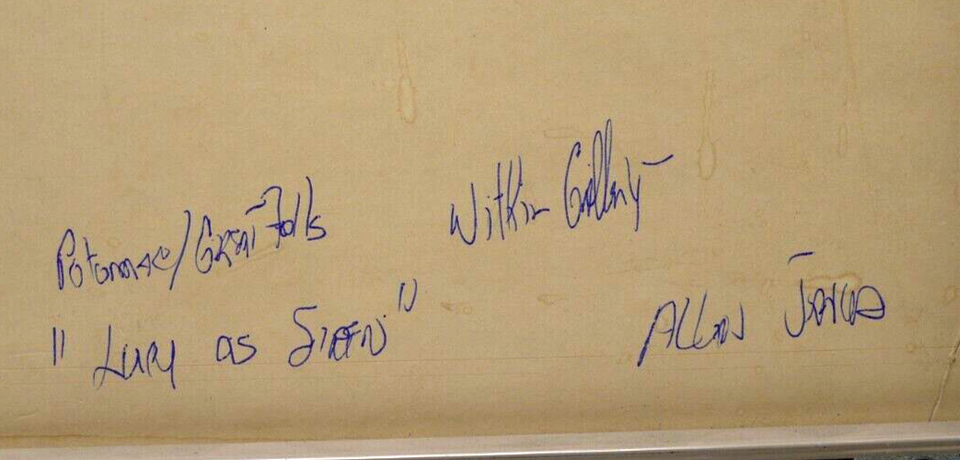 Potomac/Great Falls
Within Gallery
"Lucy as Siren"
Allen